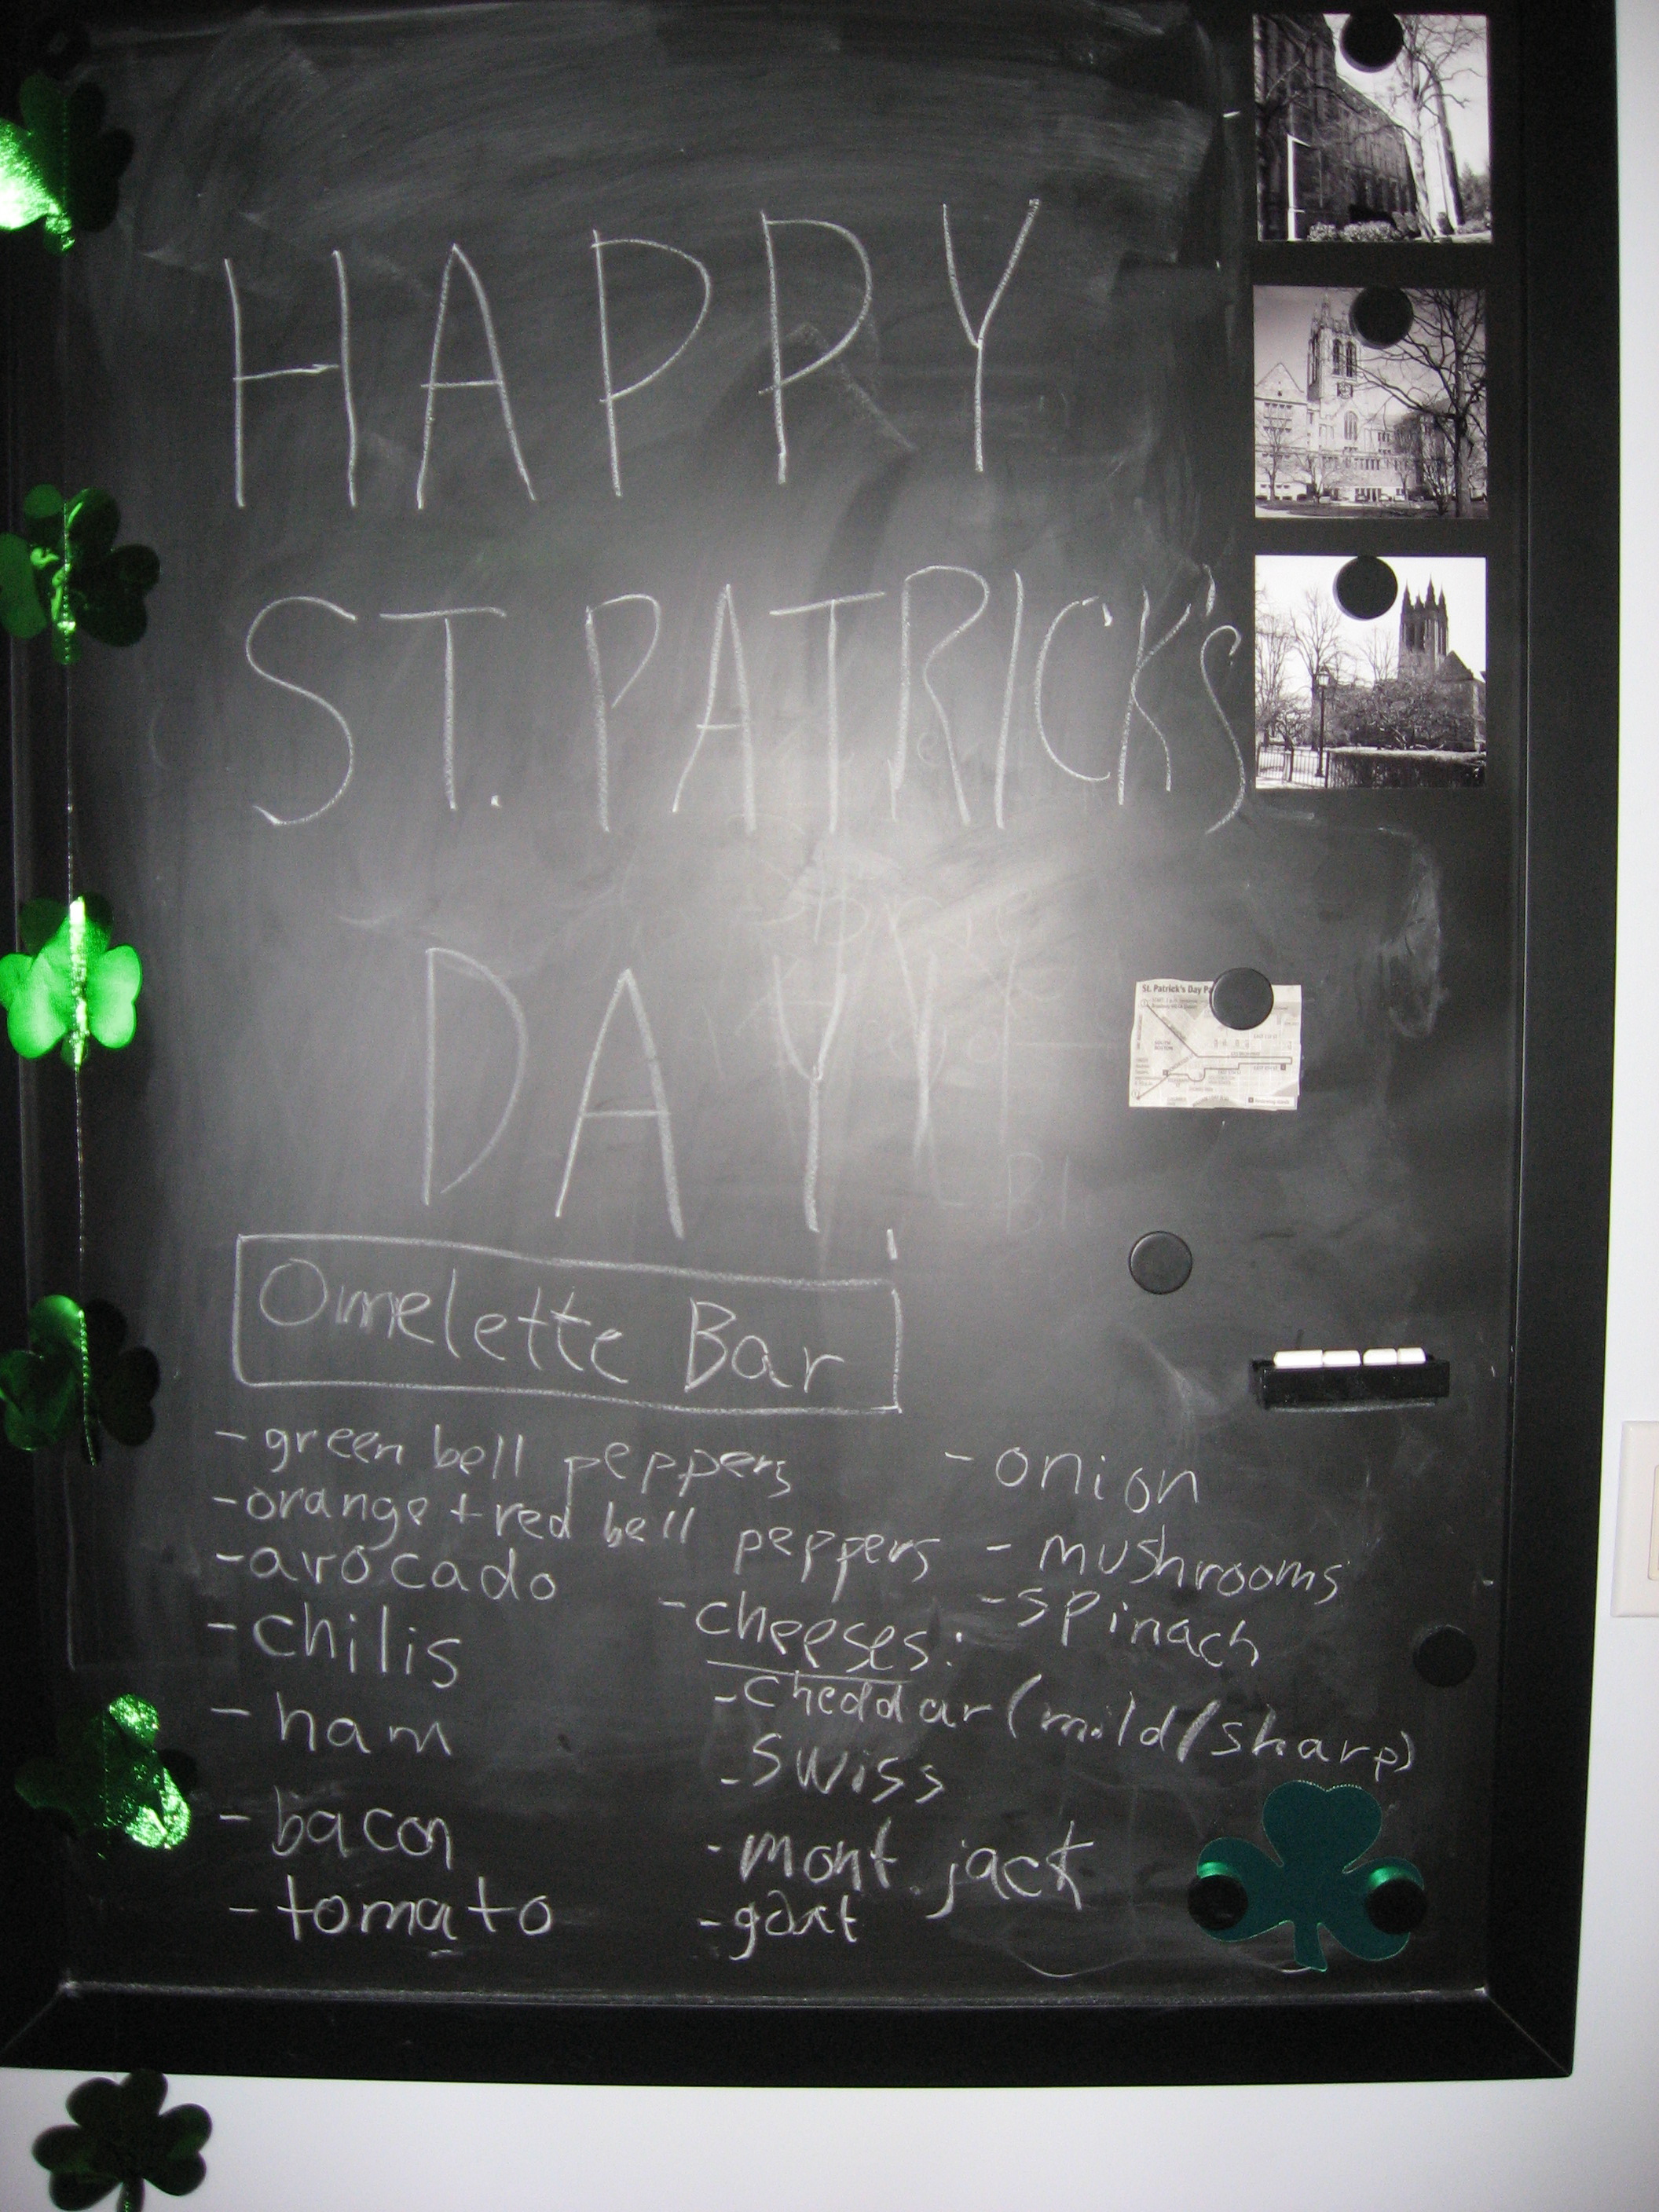 HAPPY
ST. PATRICK'S
DAY
St. Patrick's Day Pa
Omelette Bar
- green bell peppers
- orange + red bell peppers
- avocado
- chilis
- ham
- bacon
- tomato
- onion
- mushrooms
- spinach
- cheeses:
- cheddar (mild/sharp)
- swiss
- mont. jack
- goat